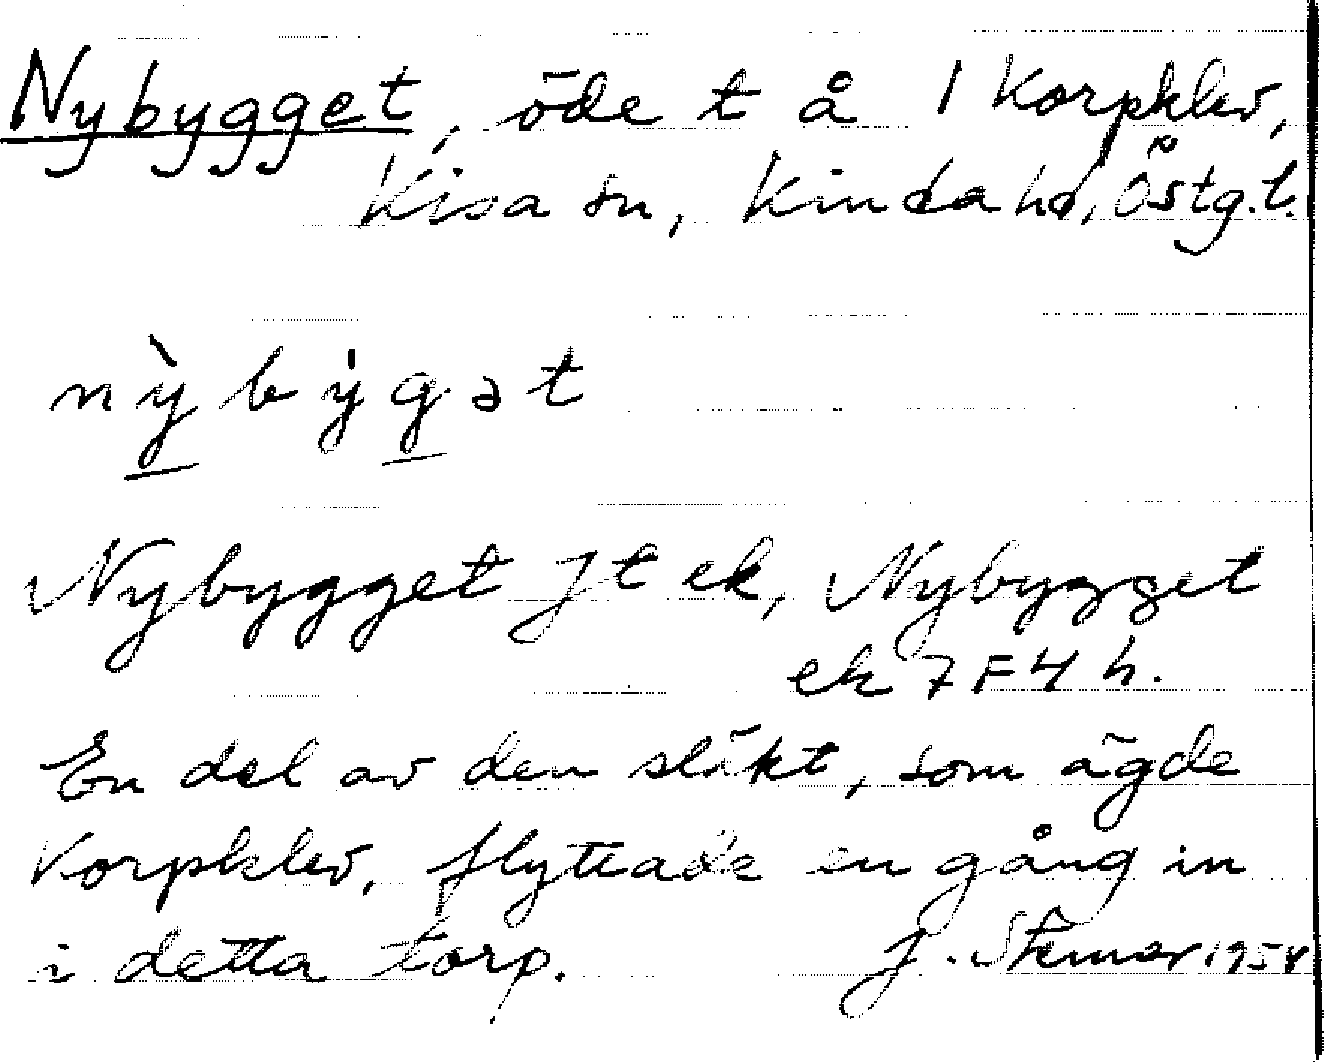 Nybygget, öde t å 1 Korpklev,
Kisa sn, Kinda hd, Östg.l.
nỳbẏgət
Nybygget Jt ek, Nybygget
ek 7 F 4 h.
En del av den släkt, som ägde
Korpklev, flyttade en gång in
i detta torp. J. 1954